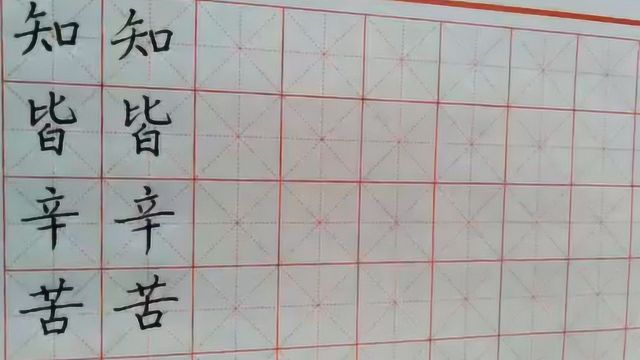 知 知
皆 皆
辛 辛
苦 苦